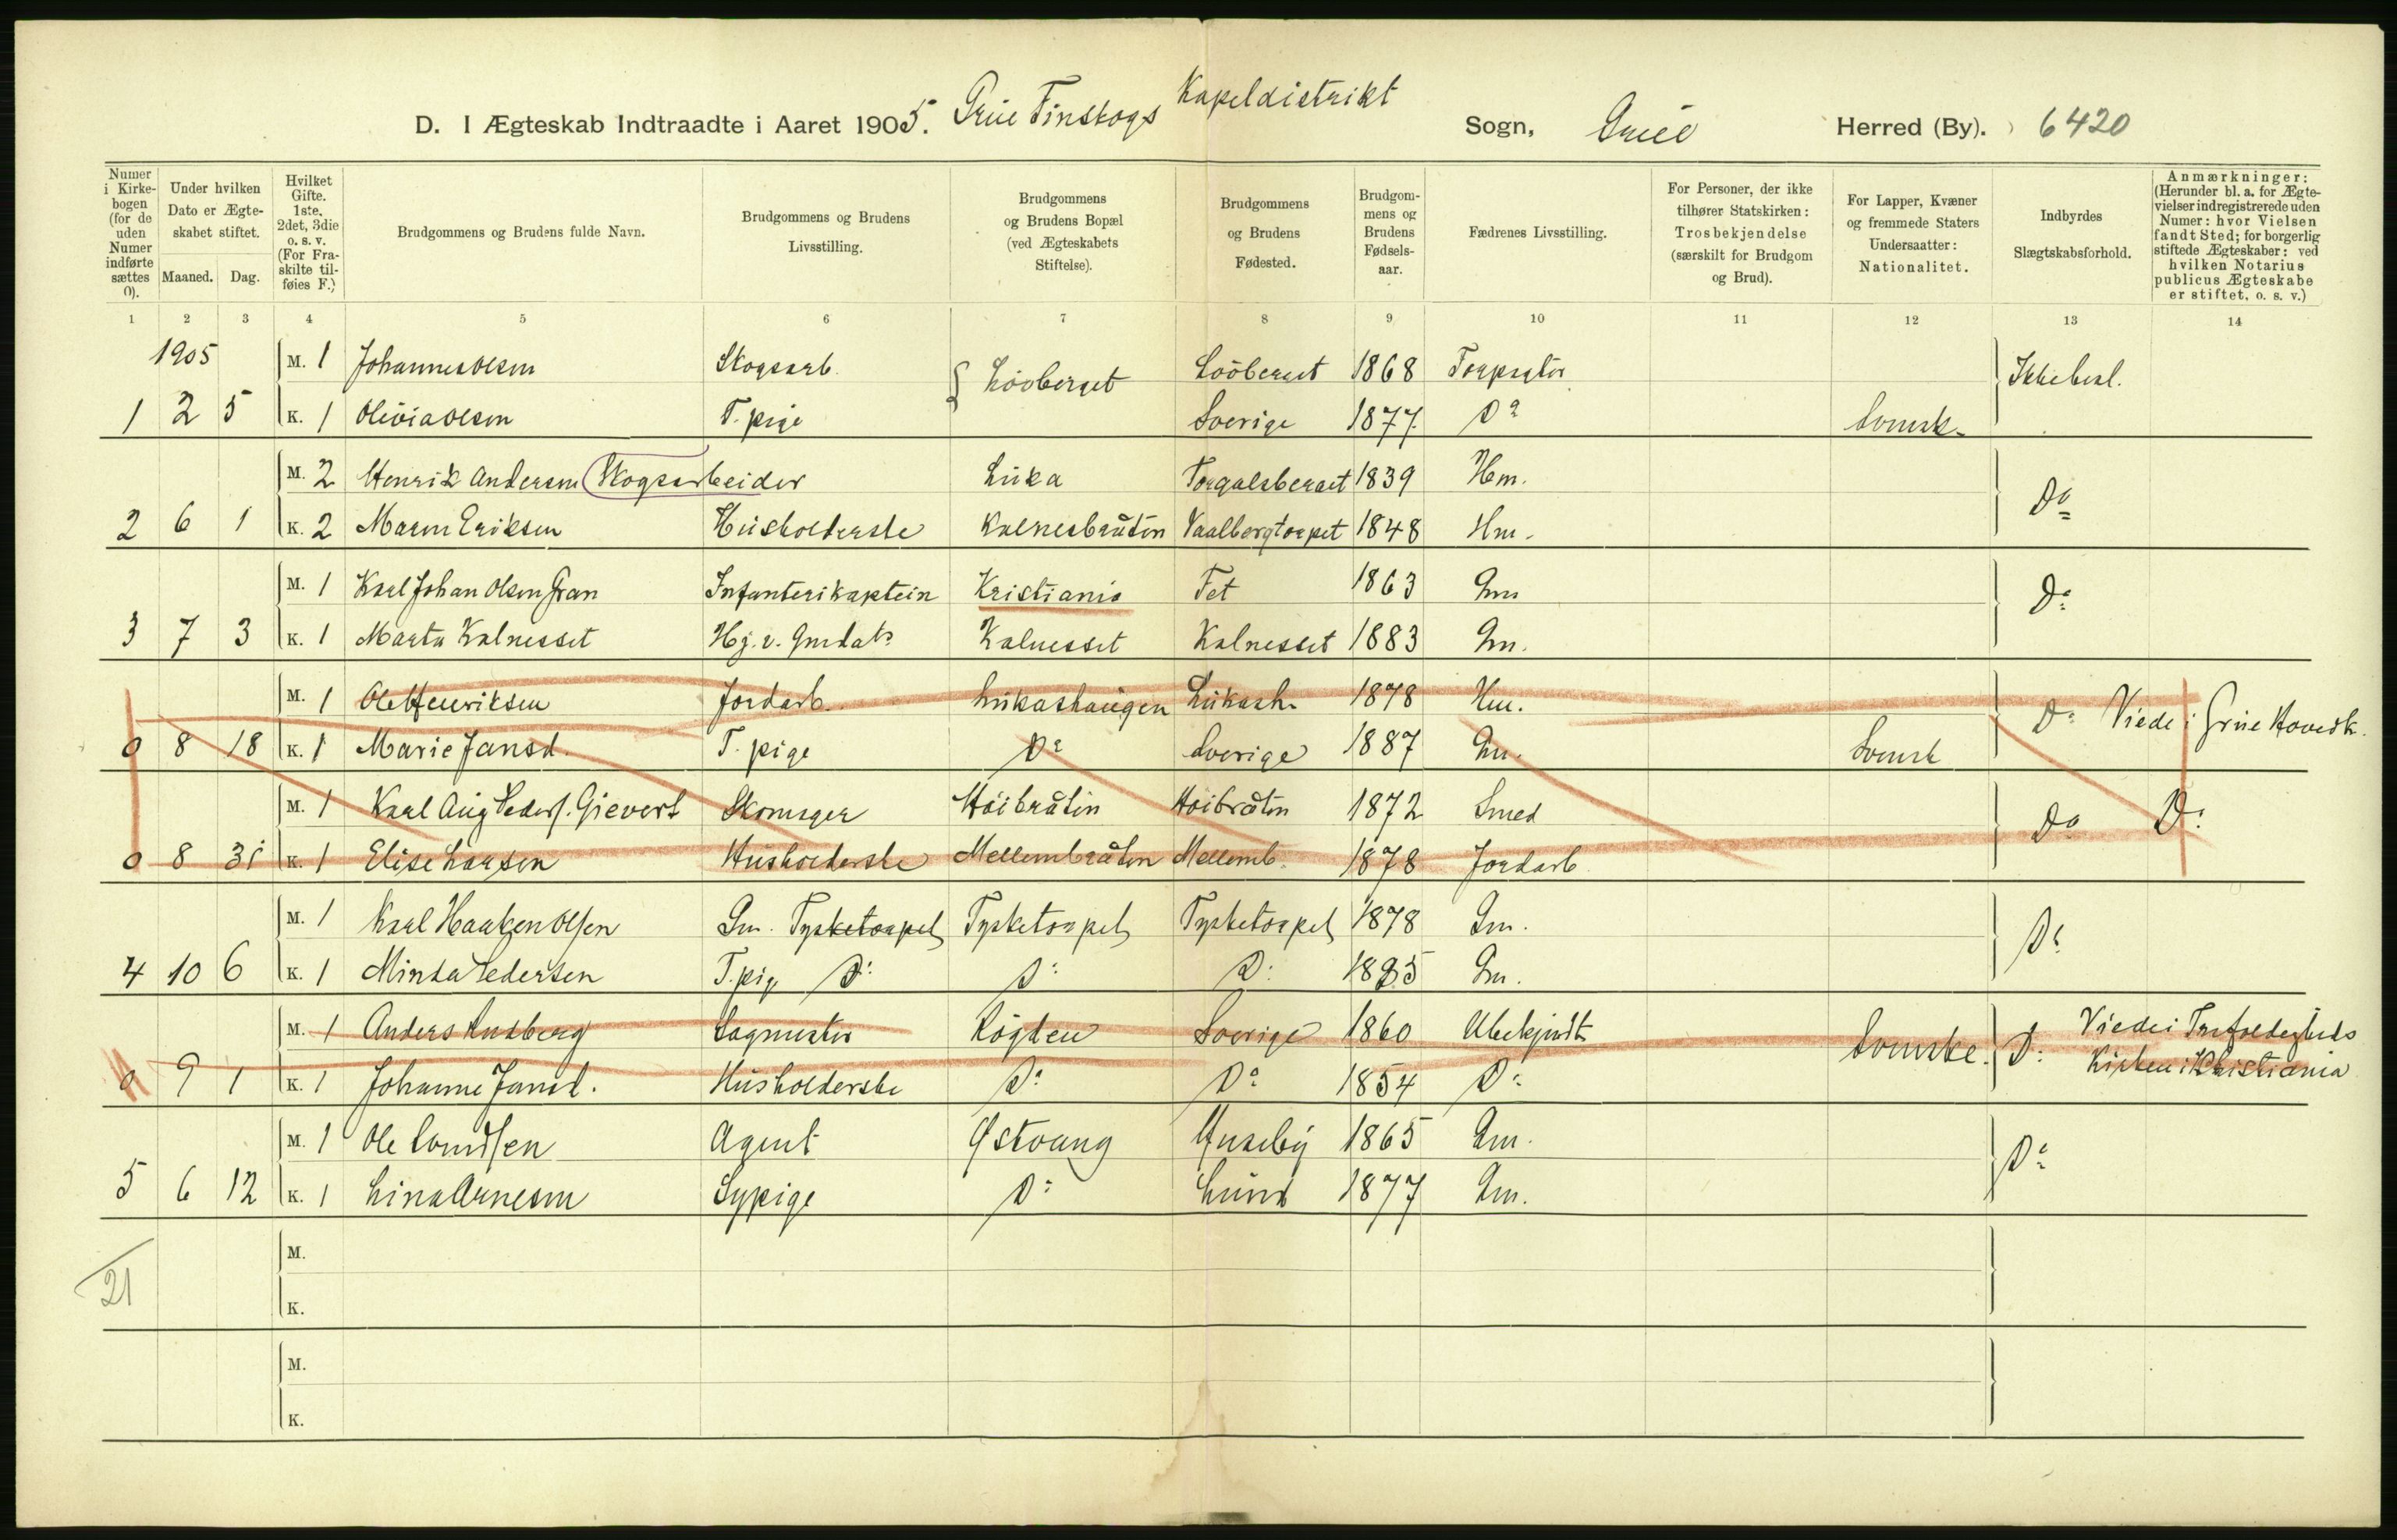 D. I Ægteskab Indtraadte i Aaret 1905. Grue Finskogs Kapeldistrikt Sogn, Grue Herred (By). 6420
Numer i Kirkebogen (for de uden Numer indførte sættes 0).
Under hvilken Dato er Ægteskabet stiftet.
Maaned. Dag.
Hvilket Gifte. 1ste, 2det, 3die o. s. v. (For Fraskilte tilføies F.)
Brudgommens og Brudens fulde Navn.
Brudgommens og Brudens Livsstilling.
Brudgommens og Brudens Bopæl (ved Ægteskabets Stiftelse).
Brudgommens og Brudens Fødested.
Brudgommens og Brudens Fødselsaar.
Fædrenes Livsstilling.
For Personer, der ikke tilhører Statskirken: Trosbekjendelse (særskilt for Brudgom og Brud).
For Lapper, Kvæner og fremmede Staters Undersaatter: Nationalitet.
Indbyrdes Slægtskabsforhold.
Anmærkninger: (Herunder bl. a. for Ægtevielser indregistrerede uden Numer: hvor Vielsen fandt Sted; for borgerlig stiftede Ægteskaber: ved hvilken Notarius publicus Ægteskabe er stiftet, o. s. v.)
1 2 3 4 5 6 7 8 9 10 11 12 13 14
1905 M. 1 Johannes Olsen Skogsarb. Lövberget Lööberget 1868 Ikkebesl.
1 2 5 K. 1 Olivia Olsen T. pige Sverige 1877 Do Svensk
M. 2 Henrik Andersen Skogsarbeider Luka 1839 Hm. Do
2 6 1 K. 2 Maren Eriksen Husholderske Kalnesbråten Vaalbergtorpet 1848 Hm.
M. 1 Karl Johan Olsen Gran Infanterikaptein Kristiania Fet 1863 Gm Do
3 7 3 K. 1 Marta Kalnesset Hj. v. Kalnesset Kalnesset 1883 Gm.
M. 1 Ole Henriksen Jordarb. Lukashaugen Lukash. 1878 Hm. Do Viede i Grue Hovedk.
0 8 18 K. 1 Marie Jansd. T. pige Do Sverige 1887 Gm. Svensk
M. 1 Karl Aug Peders. Gievert Skomager Höibråten Höibråten 1872 Smed Do Do
0 8 31 K. 1 Elise Larsen Husholderske Mellembråten Mellemb. 1878 Jordarb
M. 1 Karl Haaken Olsen Gm. Tysketorpet Tysketorpet Tysketorpet 1878 Gm. Do
4 10 6 K. 1 Minda Pedersen T. pig Do Do Do 1885 Gm.
M. 1 Anders Sagmester Rögden Sverige 1860 Ubekjendt Svenske. Do Viede i Trefoldigheds
0 9 1 K. 1 Johanne Jansd. Husholderske Do Do 1854 Do Kirken i Kristiania
M. 1 Ole Agent Østvang Huseby 1865 Gm. Do
5 6 12 K. 1 Lina Arnesen Sypige Do Lund 1877 Gm.
M.
21
K.
M.
K.